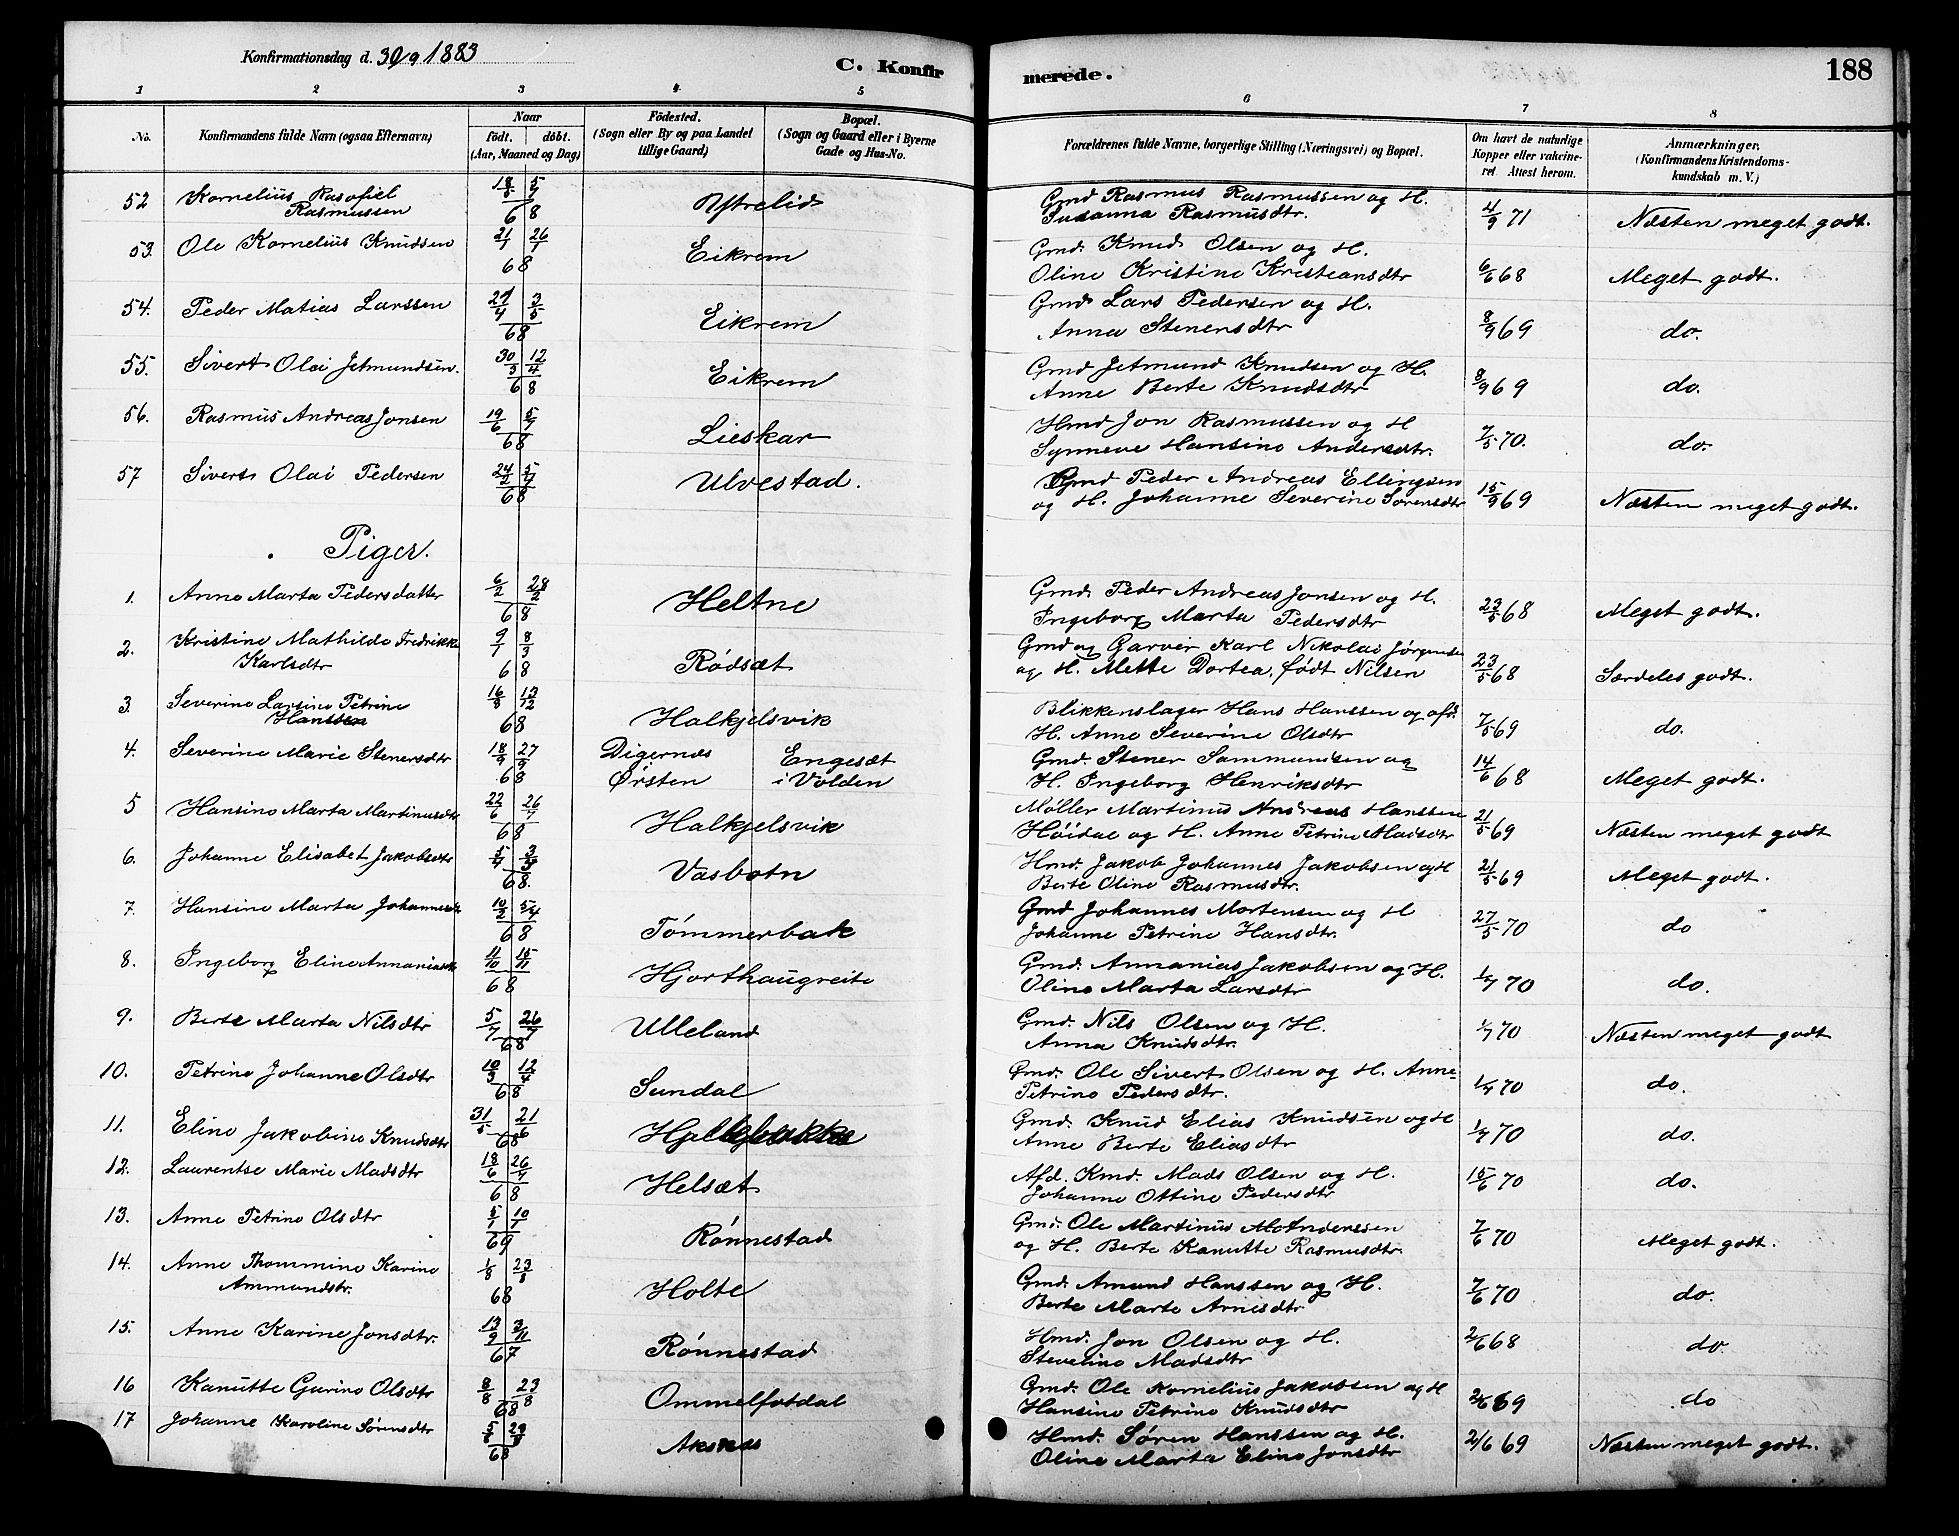 Konfirmationsdag d. 30/9 1883
C. Konfirmerede.
188
1 2 3 4 5 6 7 8
No. Konfirmandens fulde Navn (ogsaa Efternavn) Naar födt. döbt. (Aar, Maaned og Dag) Födested. (Sogn eller By og paa Landet tillige Gaard) Bopæl. (Sogn og Gaard eller i Byerne Gade og Hus-No. Forældrenes fulde Navne, borgerlige Stilling (Næringsvei) og Bopæl. Om havt de naturlige Kopper eller vakcineret. Attest herom. Anmærkninger. (Konfirmandens Kristendomskundskab m. V.)
52 Kornelius Rasofiel Rasmussen 18/5 5/7 68 Ytrelid Gmd Rasmus Rasmussen og H. Susanna Rasmusdtr. 4/9 71 Næsten meget godt.
53. Ole Kornelius Knudsen 21/1 26/1 68 Eikrem Gmd. Knud Olsen og H. Oline Kristine Kristeansdtr 6/6 68 Meget godt.
54. Peder Matias Larssen 27/4 3/5 68 Eikrem Gmd Lars Pedersen og H. Anna Stenersdtr 8/9 69 do.
55. Sivert Olai Jetmundsen. 30/3 12/4 68 Eikrem Gmd Jetmund Knudsen og H. Anne Berte Knudsdtr 8/9 69 do.
56. Rasmus Andreas Jonsen 19/6 5/7 68 Lieskar Hmd Jon Rasmussen og H Synneve Hansine Andersdtr. 7/5 70. do.
57 Sivert Olai Pedersen 24/2 5/7 68 Ulvestad. Gmd Peder Andreas Ellingsen og H. Johanne Severine Sørensdtr 15/9 69 Næsten meget godt.
Piger.
1. Anne Marta Pedersdatter 6/2 28/2 68 Heltne Gmd. Peder Andreas Jonsen og H. Ingeborg Marta Pedersdtr 23/5 68 Meget godt.
2. Kristine Mathilde Fredrikke Karlsdtr 9/1 8/3 68 Rødsæt Gmd og Garver Karl Nikolai Jørgensen og H. Mette Dortea, født Nilsen 23/5 68 Særdeles godt.
3. Severine Larsine Petrine Hanssen 16/8 13/12 68 Halkjelsvik Blikkenslager Hans Hanssen og afd. H. Anne Severine Olsdtr 7/5 69 do.
4. Severine Marie Stenersdtr 18/9 27/9 68 Digernæs Ørsten Engesæt i Volden Gmd. Stener Sammundsen og H. Ingeborg Henriksdtr 14/6 68 Meget godt.
5 Hansine Marta Martinusdtr 22/6 26/7 68 Halkjelsvik Møller Martinus Andreas Hanssen Høidal og H. Anne Petrine Madsdtr 21/5 69 Næsten meget godt
6. Johanne Elisabet Jakobsdtr 5/4 3/5 68. Vasbotn Hmd. Jakob Johannes Jakobsen og H Berte Oline Rasmusdtr. 21/5 69 Meget godt.
7. Hansine Marta Johannesdtr 10/2 5/4 68 Tømmerbak Gmd Johannes Mortensen og H Johanne Petrine Hansdtr. 27/5 70 do
8. Ingeborg Eline Annaniasdtr 11/10 15/11 68 Hjorthaugreite Gmd. Annanias Jakobsen og H. Oline Marta Larsdtr 1/7 70 do.
9. Berte Marta Nilsdtr 5/7 26/7 68 Ulleland Gmd. Nils Olsen og H. Anna Knudsdtr. 1/7 70 Næsten meget godt
10. Petrine Johanne Olsdtr 10/3 12/4 68 Sundal Gmd. Ole Sivert Olsen og H. Anne Petrine Pedersdtr. 1/7 70 do.
11. Eline Jakobine Knudsdtr 31/5 21/6 68 Gmd. Knud Elias Knudsen og H Anne Berte Eliasdtr 1/7 70 do.
12. Laurentse Marie Madsdtr 18/6 26/7 68 Helsæt Afd. Kmd. Mads Olsen og H. Johanne Ottine Pedersdtr 15/6 70 do.
13. Anne Petrine Olsdtr 5/1 10/1 69 Rønnestad Gmd. Ole Martinus Anderssen og H. Berte Kanutte Rasmusdtr. 7/6 70 Meget godt.
14. Anne Thommine Karine Ammundstr. 1/8 23/8 68 Holte Gmd. Amund Hanssen og H. Berte Marte Arnesdtr 7/6 70 do.
15. Anne Karine Jonsdtr. 13/9 3/11 67 Rønnestad Hmd. Jon Olsen og H. Steveline Madsdtr 2/6 68 do
16 Kanutte Gurine Olsdtr 8/8 23/8 68 Ommelfotdal Gmd. Ole Kornelius Jakobsen og H Hansine Petrine Knudsdtr 2/6 69 do
17 Johanne Karoline Sørensdtr 68 Aksnes Hmd. Søren Hanssen og H. Oline Marta Eline Jonsdtr 2/6 69 Næsten meget godt.